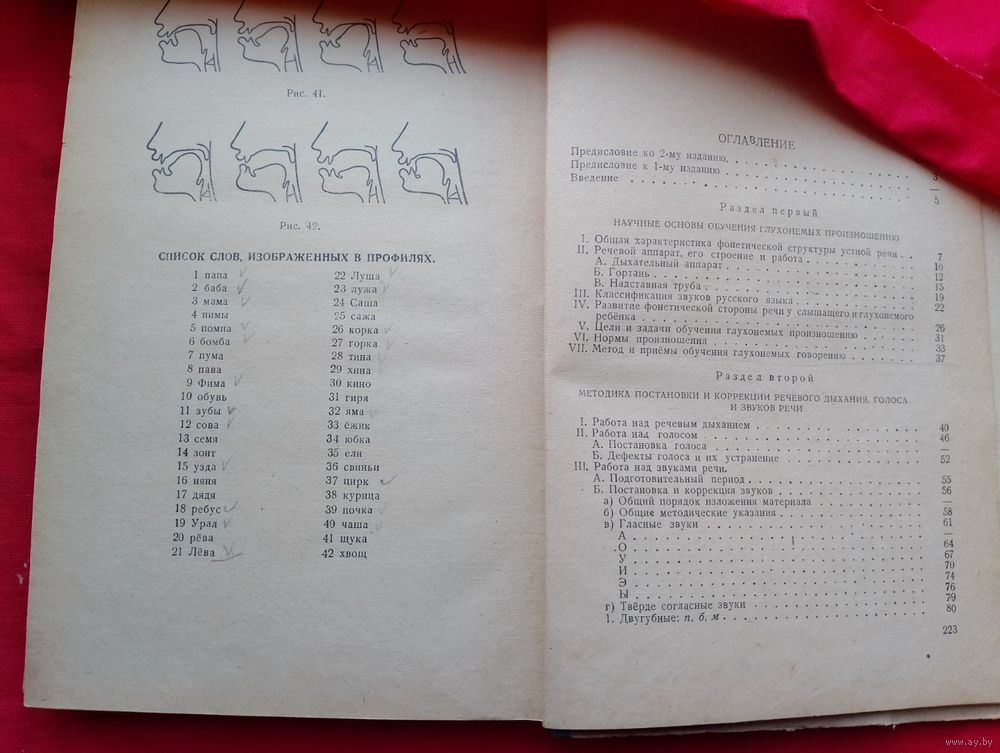 Рис. 41.
Рис. 42.
СПИСОК СЛОВ, ИЗОБРАЖЕННЫХ В ПРОФИЛЯХ.
1 папа
2 баба
3 мама
4 пимы
5 помпа
6 бомба
7 пума
8 пава
9 Фима
10 обувь
11 зубы
12 сова
13 семя
14 зонт
15 узда
16 няня
17 дядя
18 ребус
19 Урал
20 рёва
21 Лёва
22 Луша
23 лужа
24 Саша
25 сажа
26 корка
27 горка
28 тина
29 хина
30 кино
31 гиря
32 яма
33 ёжик
34 юбка
35 ели
36 свиньи
37 цирк
38 курица
39 почка
40 чаша
41 щука
42 хвощ
ОГЛАВЛЕНИЕ
Предисловие ко 2-му изданию.
Предисловие к 1-му изданию 3
Введение 5
Раздел первый
НАУЧНЫЕ ОСНОВЫ ОБУЧЕНИЯ ГЛУХОНЕМЫХ ПРОИЗНОШЕНИЮ
I. Общая характеристика фонетической структуры устной речи 7
II. Речевой аппарат, его строение и работа 10
А. Дыхательный аппарат 12
Б. Гортань 15
В. Надставная труба 19
III. Классификация звуков русского языка 22
IV. Развитие фонетической стороны речи у слышащего и глухонемого
ребёнка 26
V. Цели и задачи обучения глухонемых произношению 31
VI. Нормы произношения 33
VII. Метод и приёмы обучения глухонемых говорению 37
Раздел второй
МЕТОДИКА ПОСТАНОВКИ И КОРРЕКЦИИ РЕЧЕВОГО ДЫХАНИЯ, ГОЛОСА
И ЗВУКОВ РЕЧИ
I. Работа над речевым дыханием 40
II. Работа над голосом 46
А. Постановка голоса —
Б. Дефекты голоса и их устранение 52
III. Работа над звуками речи.
А. Подготовительный период 55
Б. Постановка и коррекция звуков 56
а) Общий порядок изложения материала —
б) Общие методические указания 58
в) Гласные звуки 61
А —
О 64
У 67
И 70
Э 74
Ы 76
г) Твёрде согласные звуки 79
1. Двугубные: п, б, м 80
223
www.ay.by